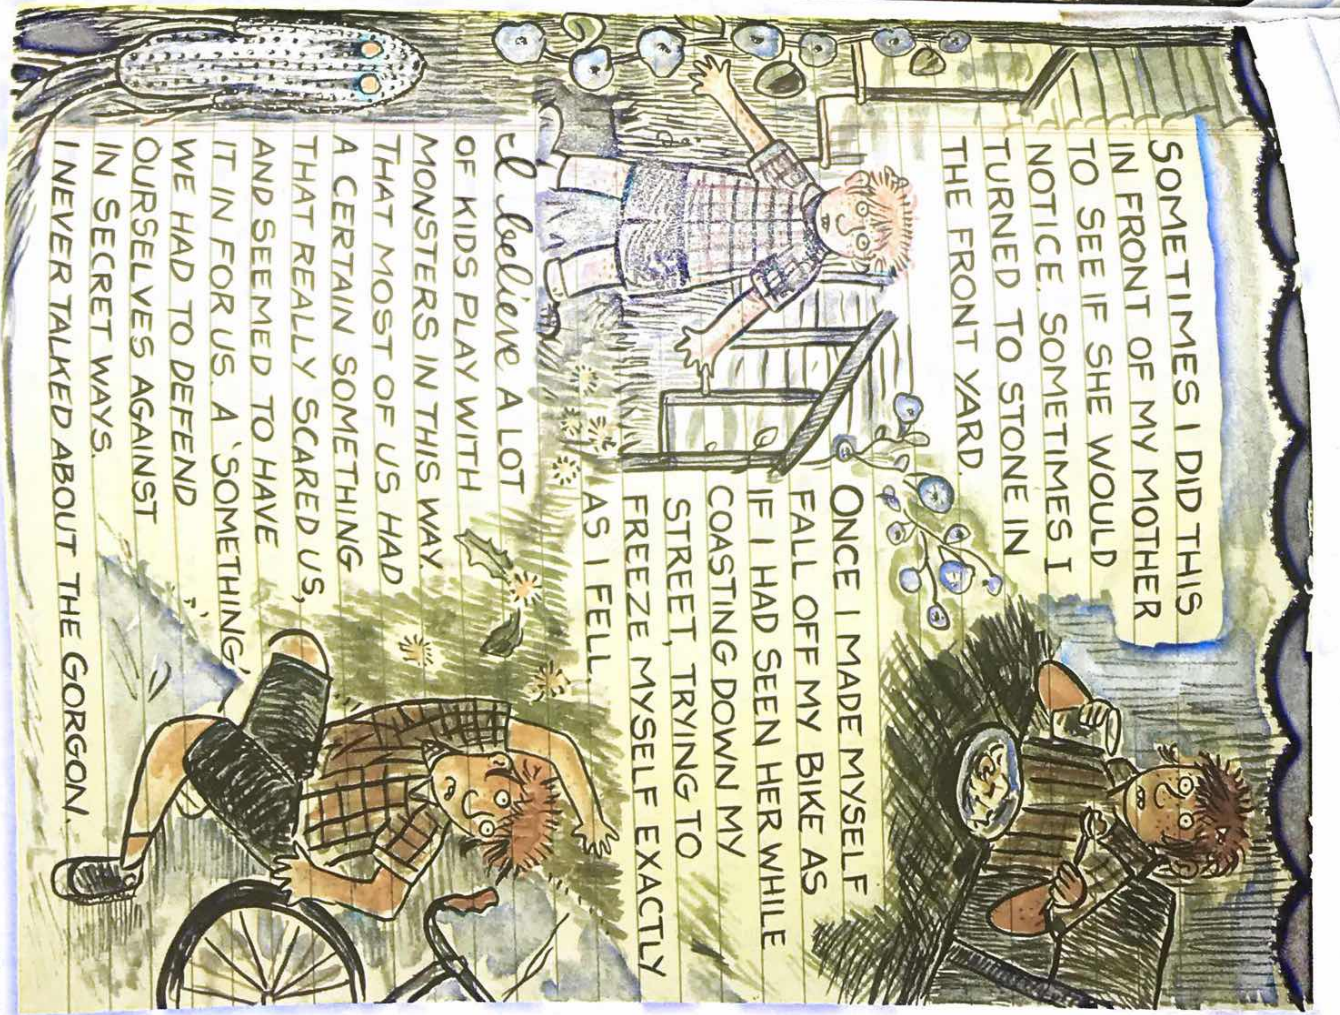 SOMETIMES I DID THIS
IN FRONT OF MY MOTHER
TO SEE IF SHE WOULD
NOTICE. SOMETIMES I
TURNED TO STONE IN
THE FRONT YARD.
ONCE I MADE MYSELF
FALL OFF MY BIKE AS
IF I HAD SEEN HER WHILE
COASTING DOWN MY
STREET, TRYING TO
FREEZE MYSELF EXACTLY
AS I FELL
I believe A LOT
OF KIDS PLAY WITH
MONSTERS IN THIS WAY.
THAT MOST OF US HAD
A CERTAIN SOMETHING
THAT REALLY SCARED US,
AND SEEMED TO HAVE
IT IN FOR US. A 'SOMETHING,'
WE HAD TO DEFEND
OURSELVES AGAINST
IN SECRET WAYS.
I NEVER TALKED ABOUT THE GORGON.